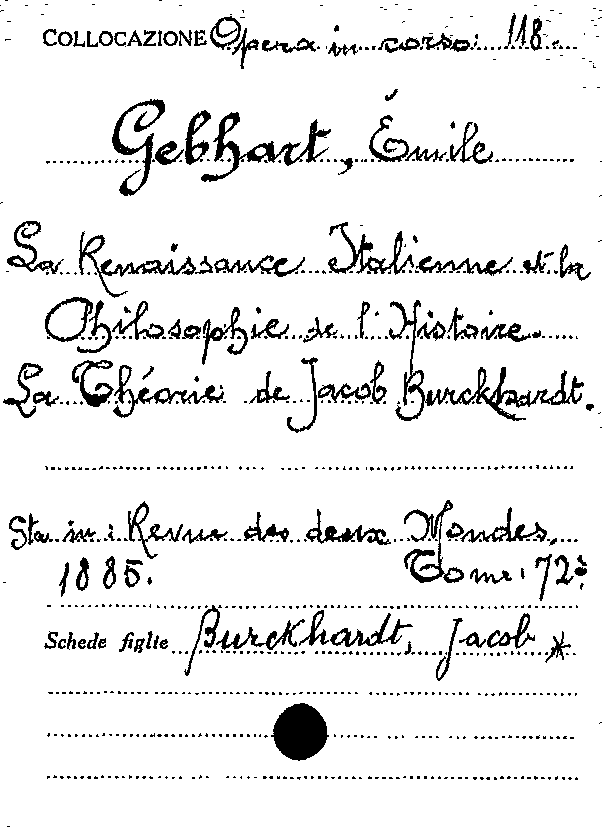 COLLOCAZIONE Opera in corso: 118.
Gebhart, Émile
La Renaissance Italienne et la
Philosophie de l'Histoire.
La Théorie de Jacob Burckhardt.
Sta in: Revue des deux Mondes,
1885. Tome 72º
Schede figlie Burckhardt, Jacob *